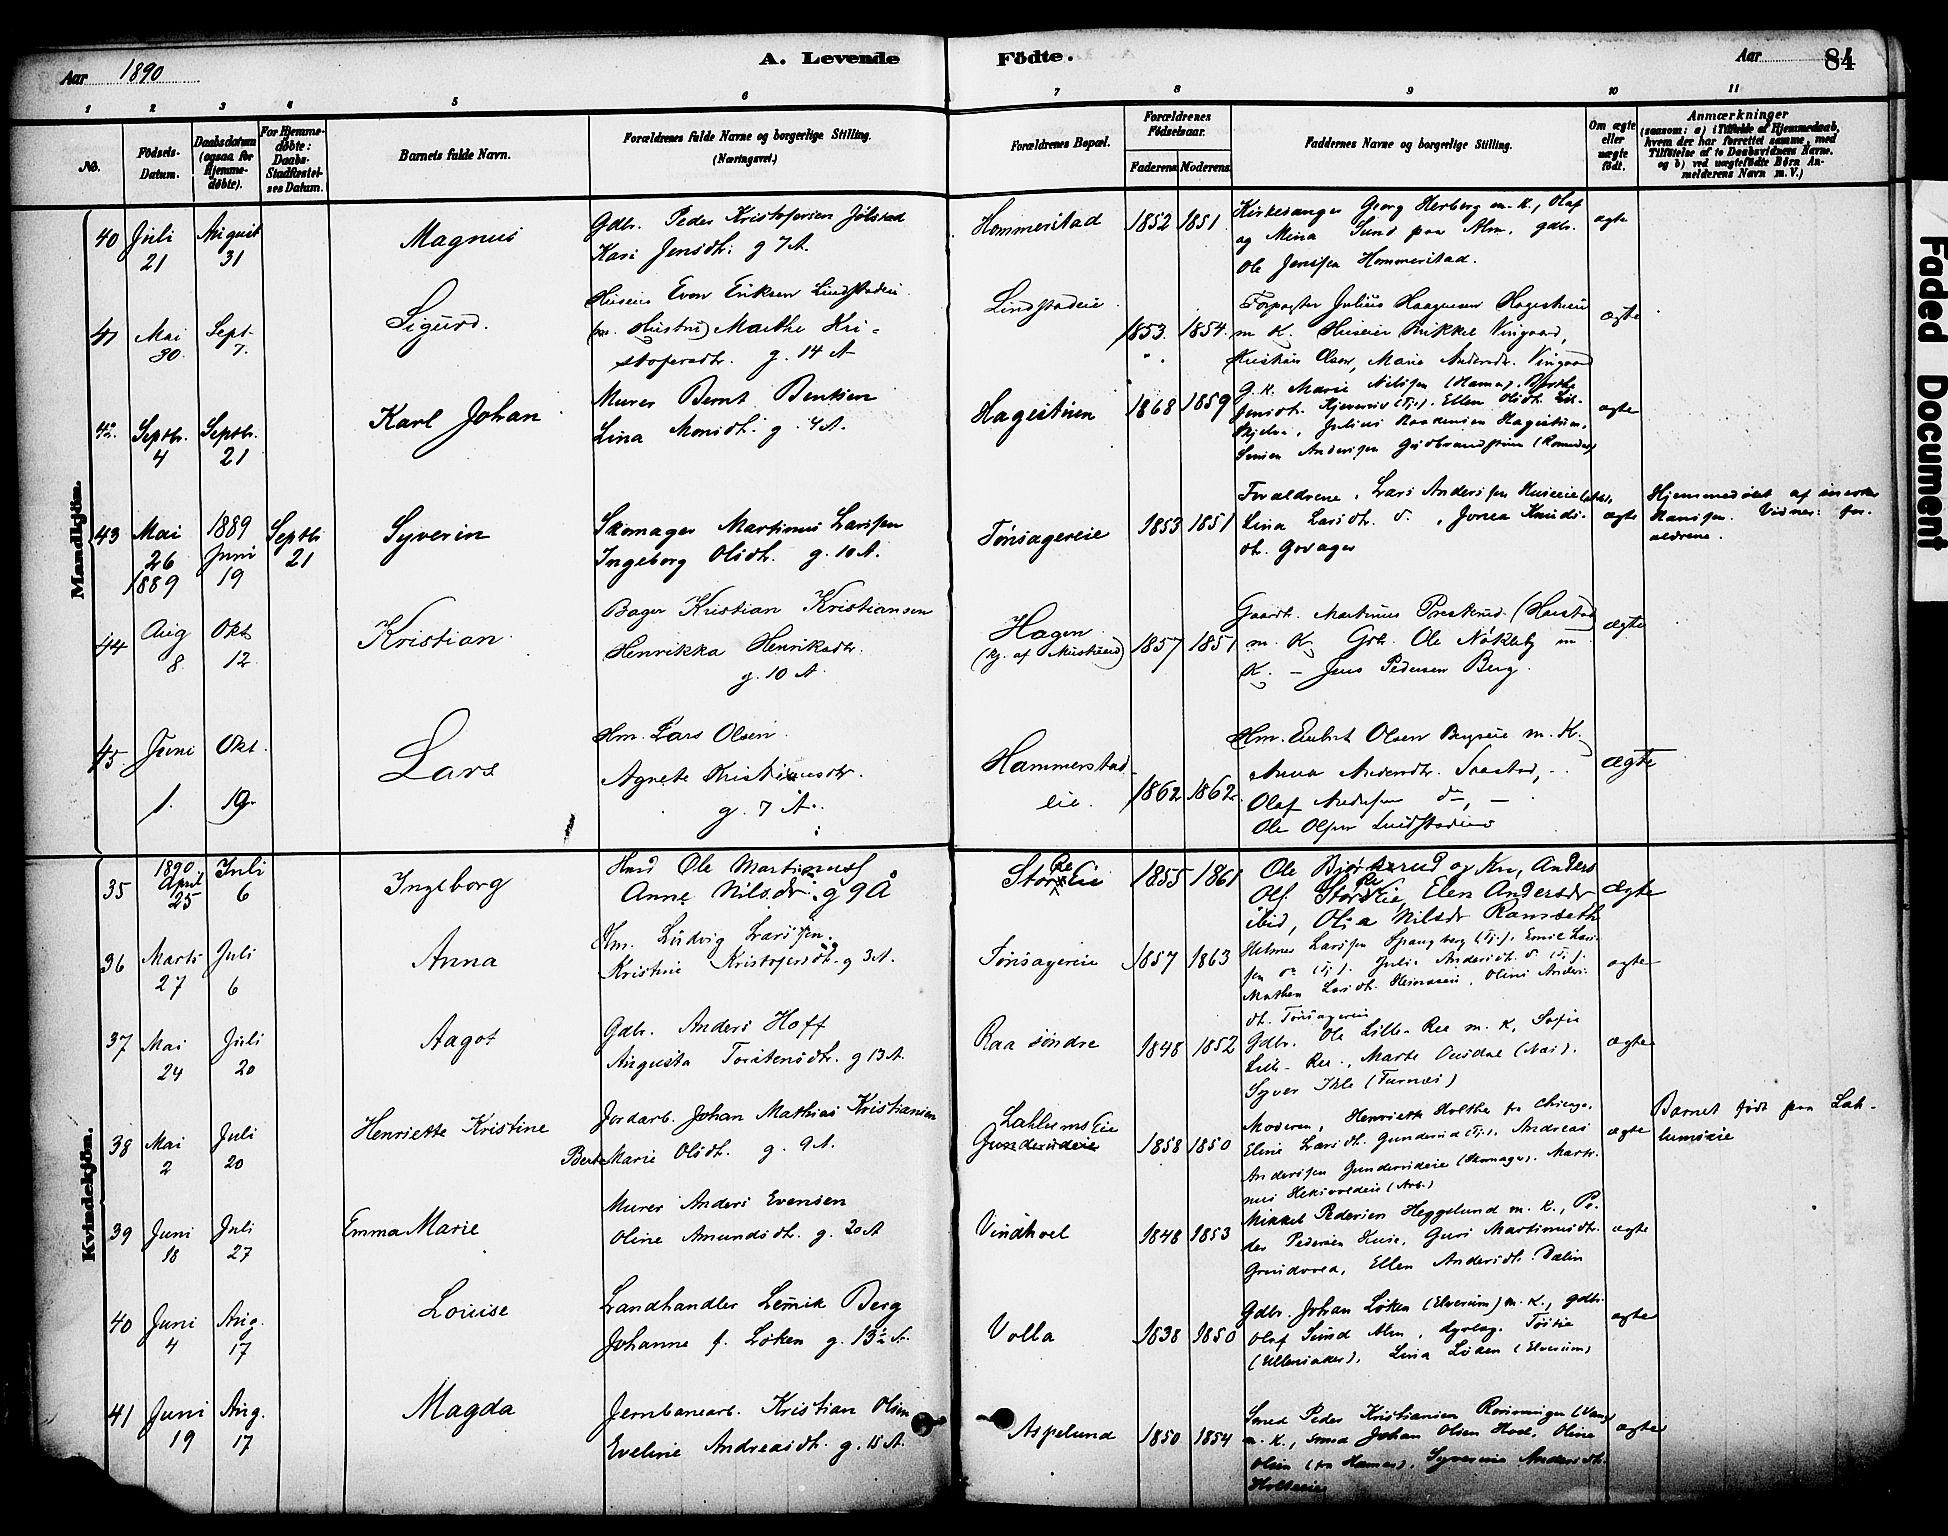 Aar 1890
A. Levende Födte.
Aar 84
1 2 3 4 5 6 7 8 9 10 11
No.
Födsels-Datum.
Daabsdatum (ogsaa for Hjemmedöbte).
For Hjemmedöbte: Daabs-Stadfæstelses Datum.
Barnets fulde Navn.
Forældrenes fulde Navne og borgerlige Stilling. (Næringsvei.)
Forældrenes Bopæl.
Forældrenes Födselsaar.
Faderens Moderens
Faddernes Navne og borgerlige Stilling.
Om ægte eller uægte födt.
Anmærkninger
(saasom: a) i Tilfælde af Hjemmedaab, hvem der har forrettet samme, med Tilföielse af to Daabsvidners Navne. og b) ved uægtefödte Börn Anmelderens Navn m. V.)
Mandkjön.
40 Juli 21 August 31 Magnus
Gdbr. Peder Kristofersen Jølstad
Kari Jensdtr. g 7 A.
Hommerstad 1852 1851
Kirkesanger Georg Herberg m. K., Olaf
og Mina Sund paa Alm, gdbr.
Ole Jenssen Hommerstad.
ægte
41 Mai 30. Sept. 7. Sigurd.
Huseier Even Eriksen Lindstadeie
(m. Hustru) Marthe Kri-
stofersdtr. g. 14 A
Lindstadeie 1853. 1854.
Forpagter Julius Haagensen Hagestuen
m K. Huseier Mikkel Vingaard,
Kristian Olsen, Marie Andersdtr. Vingaard
ægte
42 Septbr. 4 Septbr. 21 Karl Johan
Murer Bernt Bentsen
Lina Monsdtr. g. 4 A.
Hagestuen 1868 1859
G. K. Marie Nilssen (Hamar),
Ellen Olsdtr.
Julius
Anderssen Gudbrandstuen (Romedal)
ægte
43 Mai 26 1889 1889 Juni 19 Septbr 21 Syverin
Skomager Martinus Larssen
Ingeborg Olsdtr. g. 10 A.
Tønsagereie 1853 1851
Forældrene, Lars Anderssen Huseie
Lina Larsdtr. d., Jonea Knuds-
dtr. Govager
ægte
Hjemmedøbt af
Hanssen. Vidner: for-
ældrene.
44 Aug 8. Okt 12. Kristian
Bager Kristian Kristiansen
Henrikka Henriksdtr.
g. 10 A.
Hagen 1857 1851
Gaardbr. Martinus Præsterud (Harstad
m. K Gdb. Ole Nøkleby m
K. – Jens Pedersen Berg.
ægte
45 Juni 1. Okt. 19 Lars
Hm. Lars Olsen
Agnete Kristiansdtr.
g. 7 A.
Hammerstad
eie. 1862 1862.
Hm. Embret Olsen Bergseie m. K.
Anna Andersdtr. Saastad,
Olaf Anderssen do, –
Ole Olsen Lindstadeie
ægte
Kvindekjön.
35 1890 April 25 Juli 6 Ingeborg
Husmd Ole Martinus
Anne Nilsdr. g 9 Å
StorReEie 1855 1861
Ole Bjørkerud og Kn, Anders
Ols. StorReEie, Elen Andersdr
ibid, Olia Nilsdr Ramseth
ægte
36 Marts 27 Juli 6 Anna
Hm. Ludvig Larssen.
Kristine Kristofersdtr. g 3 A.
Tønsagereie 1857 1863
Helmer Larssen Spangberg (Tj.). Emil Lars-
sen do (Tj.). Julie Andersdtr. d. (Tj.).
Mathea Larsdtr. , Oline Anders-
dtr. Tønsagereie
ægte
37 Mai 24 Juli 20 Aagot
Gdbr. Anders Hoff
Augusta Torstensdtr. g 13 A.
Raa søndre 1848 1852
Gdbr. Ole Lille-Ree m. K, Sofie
Lille-Ree, Marte Ousdal (Næs).
Syver Ihle (Furnæs)
ægte
38 Mai 2 Juli 20 Henriette Kristine
Jordarb. Johan Mathias Kristiansen
Berte Marie Olsdtr. g. 9 A.
LahlumsEie
Gunderudeie 1858 1850
Moderen, Henriette Holthe fra Chicago,
Eline Larsdtr. Gunderud (Tj.), Andreas
Anderssen Gunderudeie (Skomager). Marti-
nus (Arb.)
ægte
Barnet født paa Lah-
lumseie
39 Juni 18 Juli 27 Emma Marie
Murer Anders Evensen
Oline Amundsdtr. g. 20 A
Vindhvel 1848 1853
Mikkel Pedersen Heggelund m. K., Pe-
der Pedersen Huse, Guri Martinusdtr.
, Ellen Andersdtr. Dælin
ægte
40 Juni 4 Aug. 17 Louise
Landhandler Lemik Berg
Johanne f. Løken g. 13½ A.
Volla 1838 1850
Gdbr. Johan Løken (Elverum) m. K., gdbr.
Olaf Sund Alm, dyrlæg.
(Ullensaker), Lina Løken (Elverum)
ægte
41 Juni 19 Aug. 17 Magda
Jernbanearb. Kristian Olsen
Eveline Andreasdtr. g. 15 A.
Aspelund 1850 1854
Smed Peder Kristiansen (Vang)
m. K., smed Johan Olsen Hoel, Oline
Olsen (fra Hamar), Syverine Andersdtr.
Holteeie
ægte
Faded Document